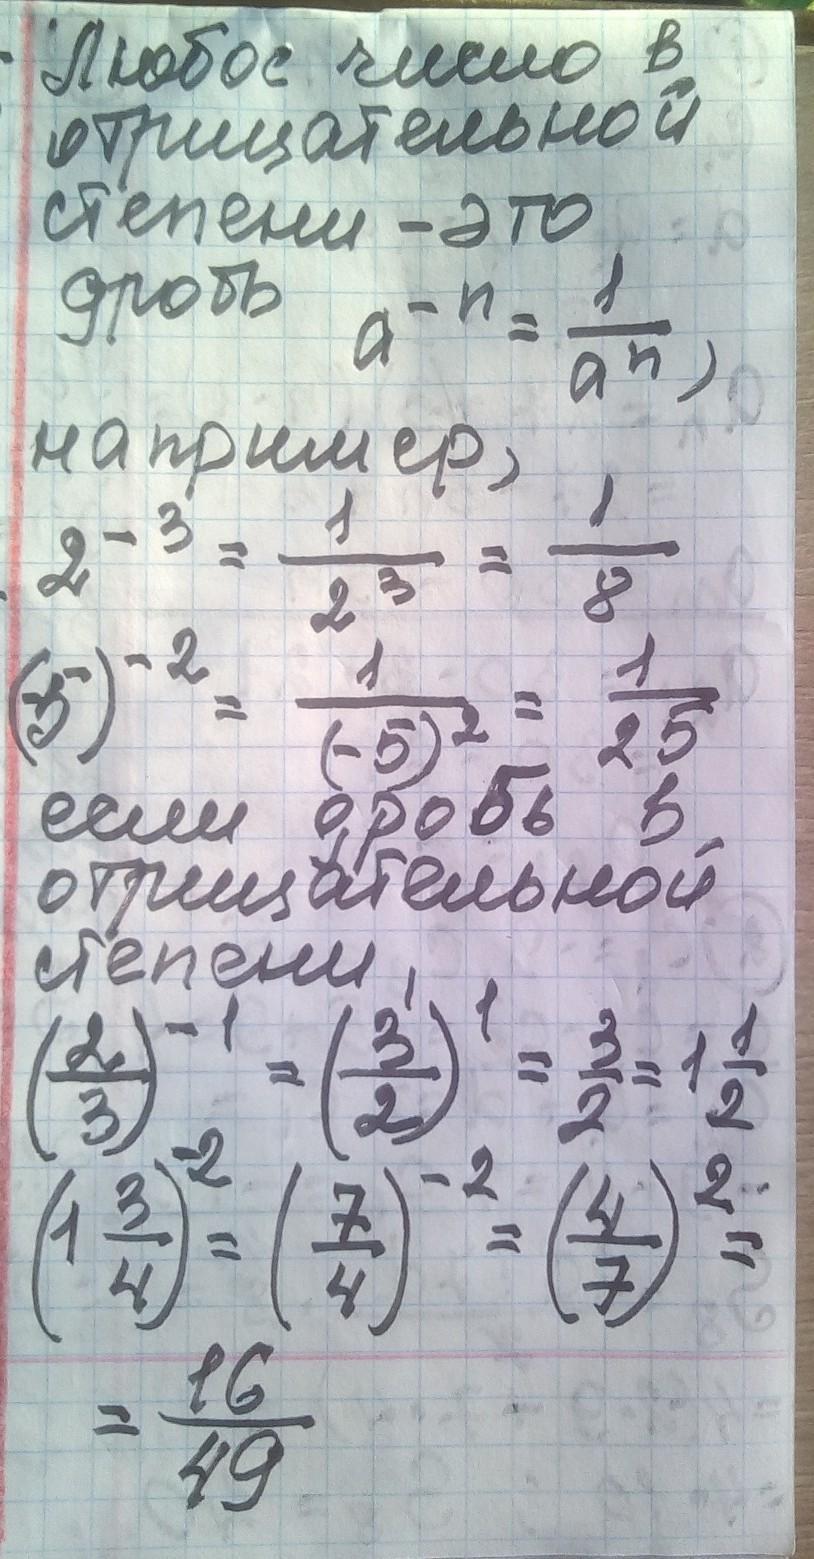 Любое число в
отрицательной
степени - это
дробь a^{-n} = \frac{1}{a^n},
например,
2^{-3} = \frac{1}{2^3} = \frac{1}{8}
(5)^{-2} = \frac{1}{(-5)^2} = \frac{1}{25}
если дробь в
отрицательной
степени,
(\frac{2}{3})^{-1} = (\frac{3}{2})^1 = \frac{3}{2} = 1\frac{1}{2}
(1\frac{3}{4})^{-2} = (\frac{7}{4})^{-2} = (\frac{4}{7})^2 =
= \frac{16}{49}